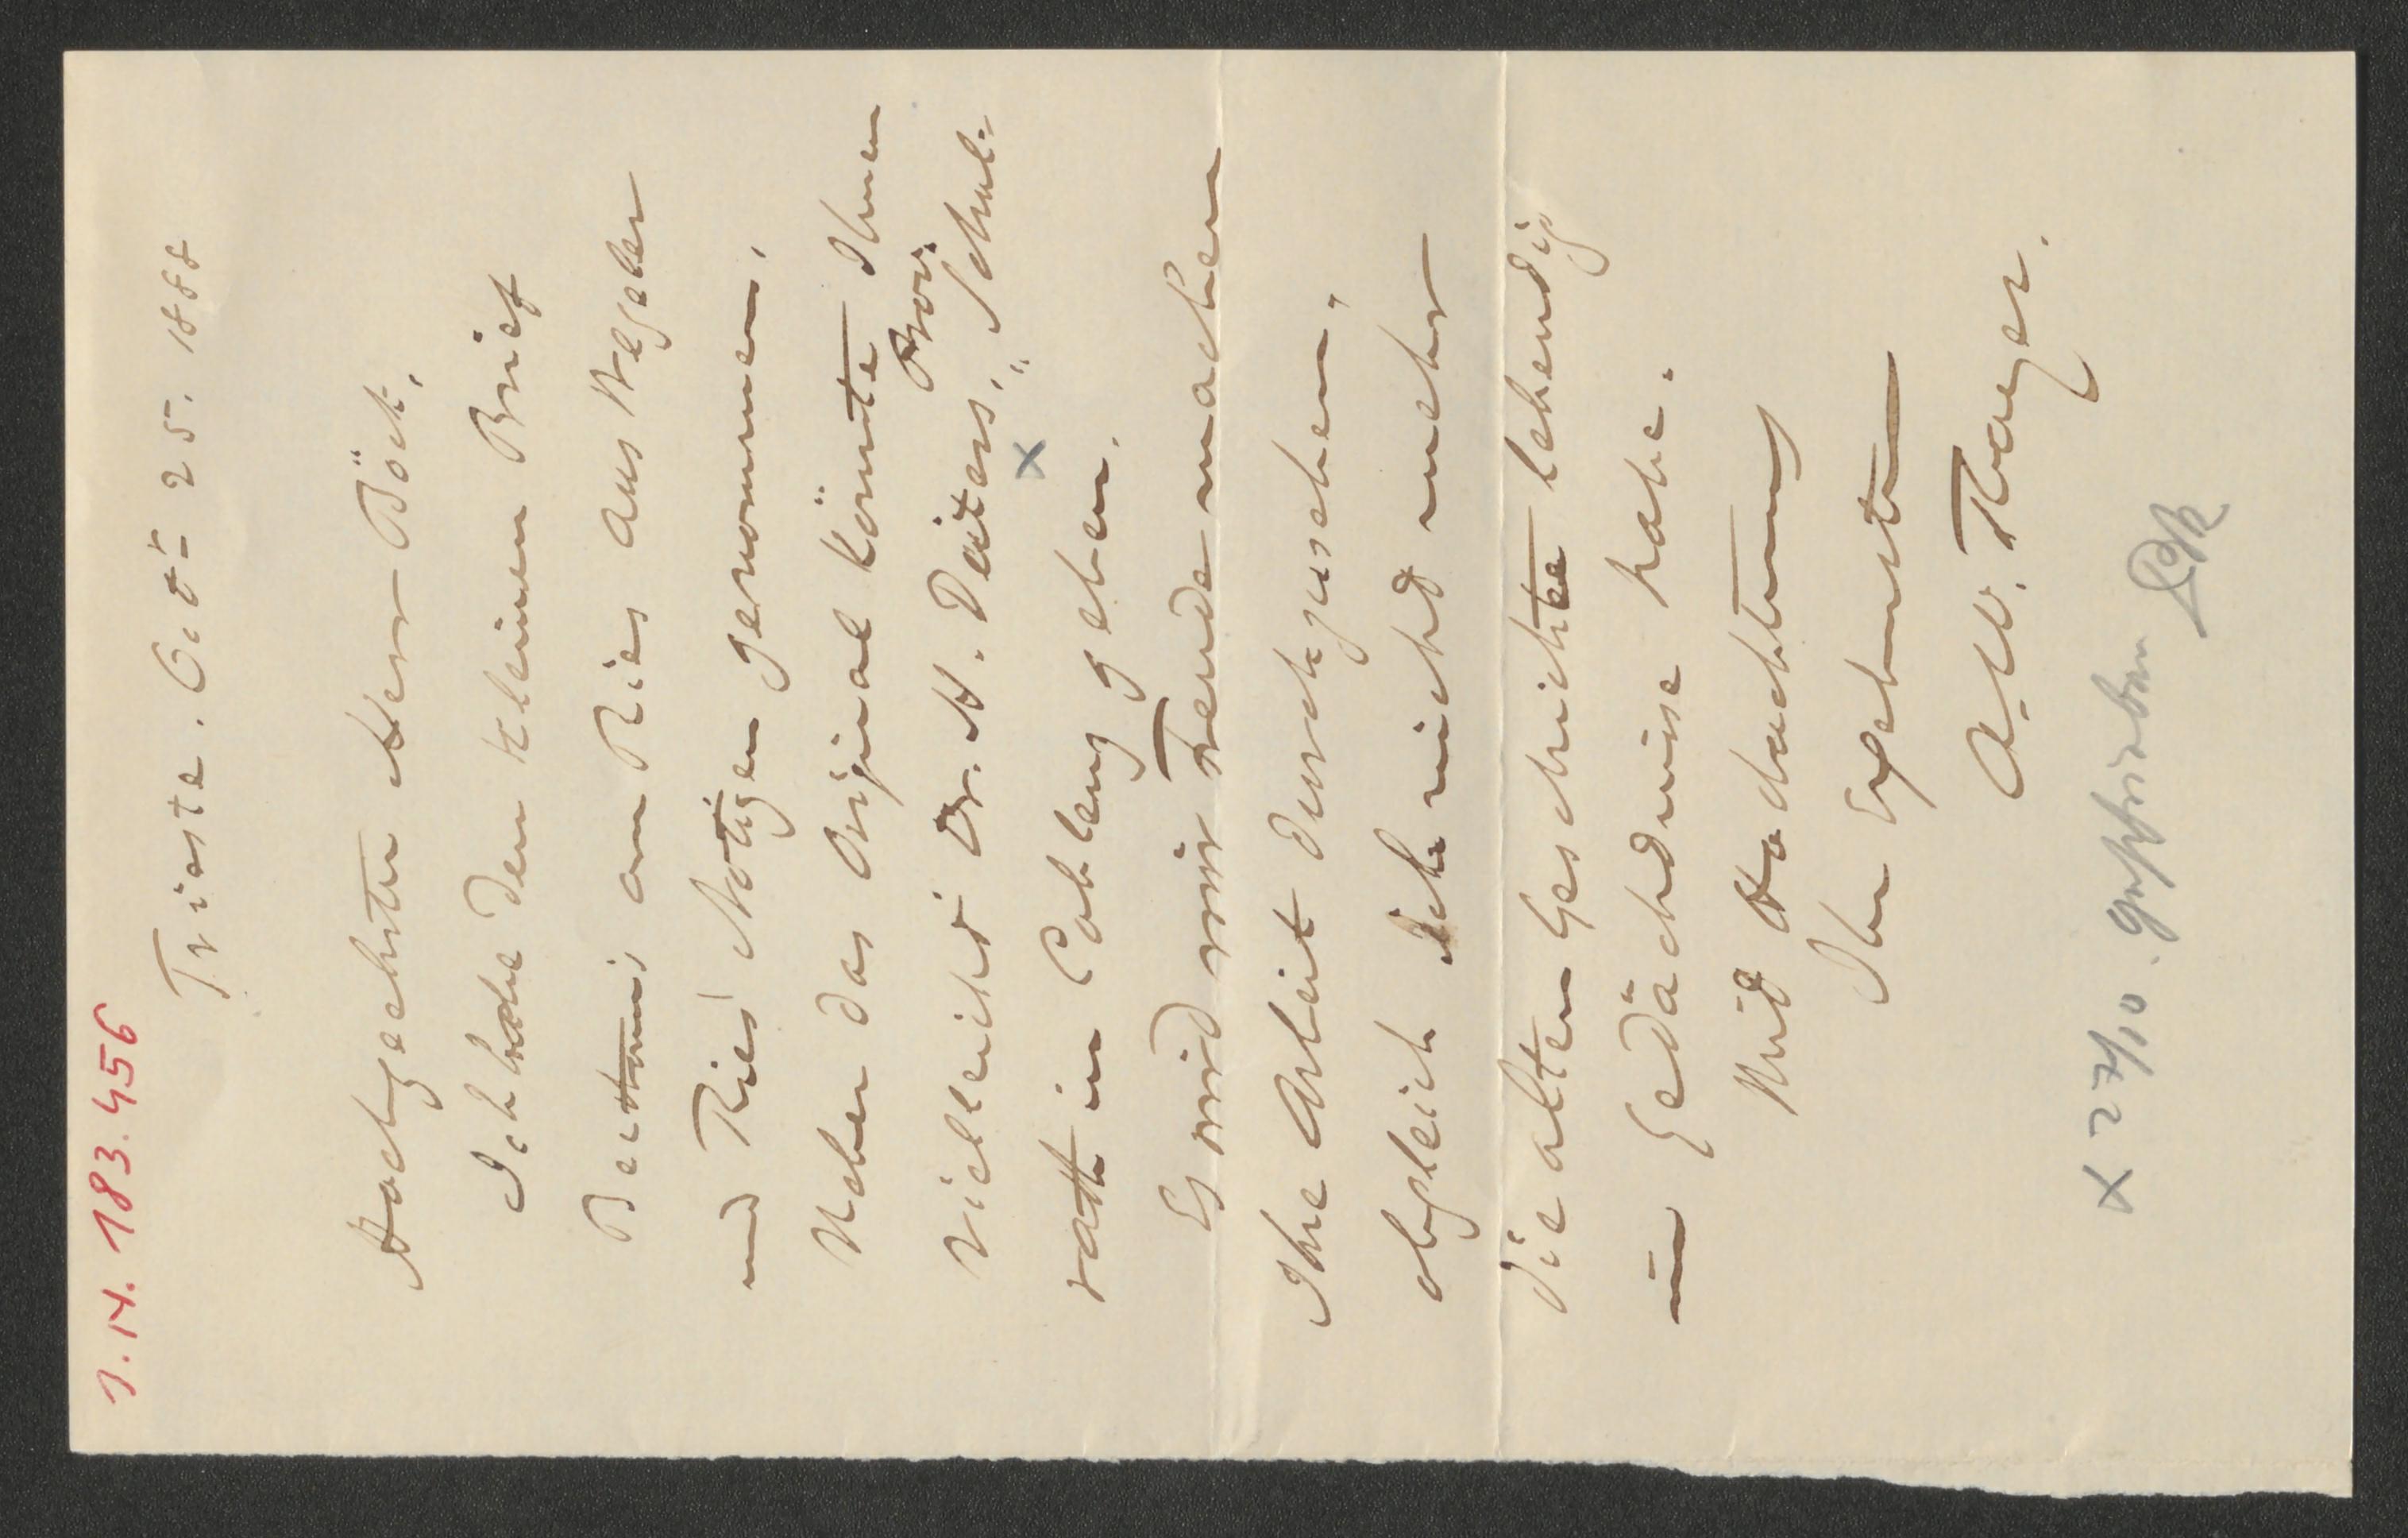 J.N. 183.456
Trieste. Oct 25. 1888
Hochgeehrter Herr Böck,
Ich habe den kleinen Brief
Beethovens an Ries aus Wegeler
und Ries Notizen genommen.
Ueber das Original könnte Ihnen
vielleicht Dr. H. Deiters, Prov. Schul-
rath in Coblenz geben.
Es wird mir Freude machen
Ihre Arbeit durchzusehen,
obgleich ich nicht mehr
die alten Geschichten lebendig
im Gedächtnisse habe.
Mit Hochachtung
Ihr Ergebenster
A. W. Thayer.
x 27/10. geschrieben